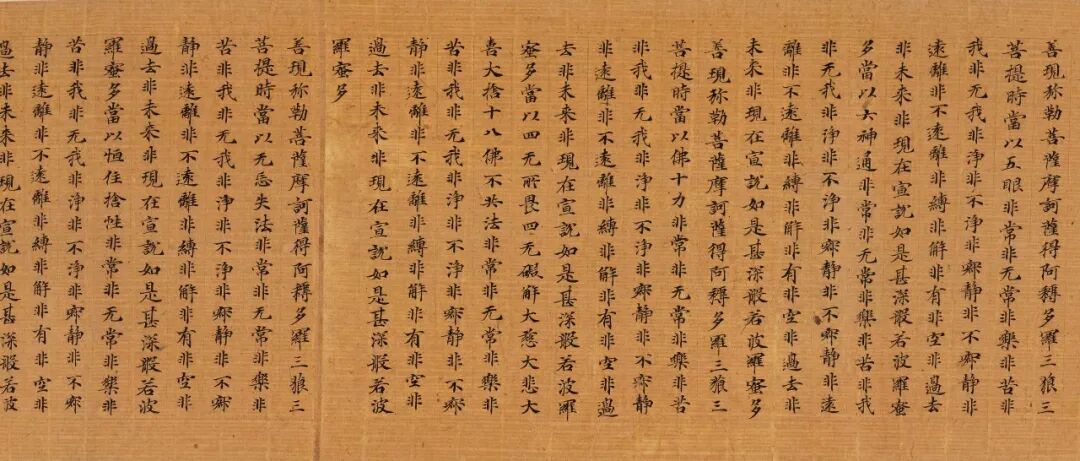 善現弥勒菩薩摩訶薩得阿耨多羅三藐三
菩提時當以五眼非常非无常非樂非苦非
我非无我非淨非不淨非寂靜非不寂靜非
遠離非不遠離非縛非解非有非空非過去
非未來非現在宣說如是甚深般若波羅蜜
多當以六神通非常非无常非樂非苦非我
非无我非淨非不淨非寂靜非不寂靜非遠
離非不遠離非縛非解非有非空非過去非
未來非現在宣說如是甚深般若波羅蜜多
善現弥勒菩薩摩訶薩得阿耨多羅三藐三
菩提時當以佛十力非常非无常非樂非苦
非我非无我非淨非不淨非寂靜非不寂靜
非遠離非不遠離非縛非解非有非空非過
去非未來非現在宣說如是甚深般若波羅
蜜多當以四无所畏四无礙解大慈大悲大
喜大捨十八佛不共法非常非无常非樂非
苦非我非无我非淨非不淨非寂靜非不寂
靜非遠離非不遠離非縛非解非有非空非
過去非未來非現在宣說如是甚深般若波
羅蜜多
善現弥勒菩薩摩訶薩得阿耨多羅三藐三
菩提時當以无忘失法非常非无常非樂非
苦非我非无我非淨非不淨非寂靜非不寂
靜非遠離非不遠離非縛非解非有非空非
過去非未來非現在宣說如是甚深般若波
羅蜜多當以恒住捨性非常非无常非樂非
苦非我非无我非淨非不淨非寂靜非不寂
靜非遠離非不遠離非縛非解非有非空非
過去非未來非現在宣說如是甚深般若波